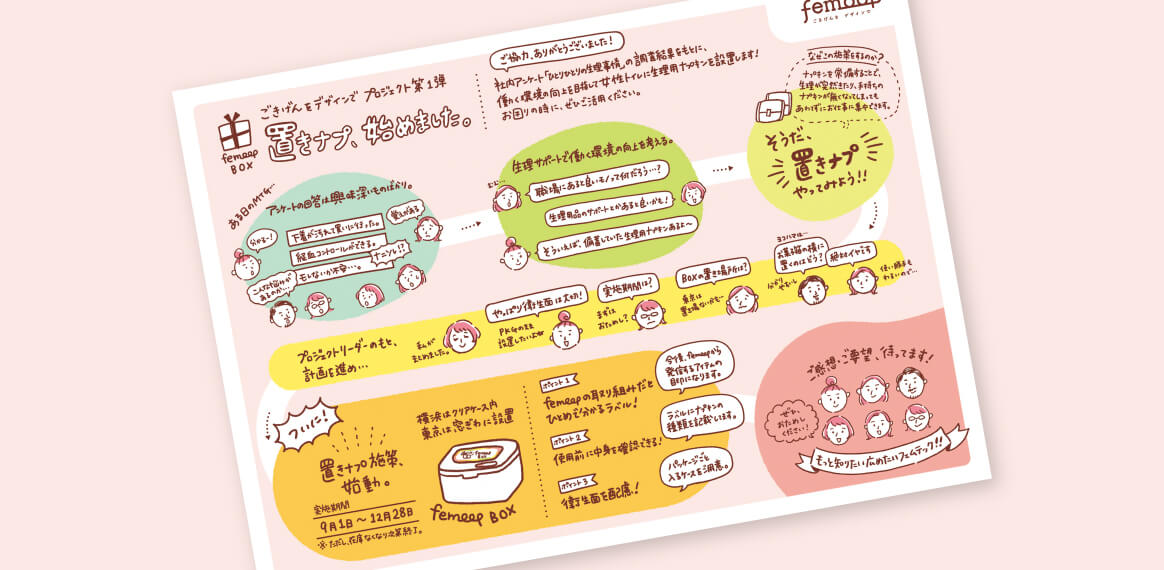 femeep
ごきげんを デザインで
ごきげんをデザインで プロジェクト第1弾
置きナプ、始めました。
femeep
BOX
ご協力、ありがとうございました!
社内アンケート「ひとりひとりの生理事情」の調査結果をもとに、
働く環境の向上を目指して女性トイレに生理用ナプキンを設置します!
お困りの時に、ぜひご活用ください。
なぜこの施策をするのか?
ナプキンを常備することで、
生理が突然きたり、手持ちの
ナプキンが無くなってしまっても
あわずにお仕事に集中できます。
ある日のMTG…
アンケートの回答は興味深いものばかり。
分かるー!
下着が汚れて買いに行った。
覚えがある
経血コントロールができる。
モレないか不安…。
ナニソレ!?
こんな悩みが
あるのか…
生理サポートで働く環境の向上を考える。
むむ…
職場にあると良いモノって何だろう…?
生理用品のサポートとかあると良いかも!
そういえば、備蓄していた生理用ナプキンあるよ〜
そうだ、
置きナプ
やってみよう!!
プロジェクトリーダーのもと、
計画を進め…
私が
まとめました。
やっぱり衛生面は大切!
PKGのまま
設置したいよね
実施期間は?
まずは
おためし?
BOXの置き場所は?
東京は
置き場ないかも…
ヨコハマは…
お菓子箱の横に
置くのはどう?
分かりやすいし
絶対イヤです
使い勝手も
わるいので…
ついに!
置きナプ施策、
始動。
実施期間
9月1日〜12月28日
※ただし、在庫なくなり次第終了。
横浜はクリアケース内
東京は窓ぎわに設置
femeep BOX
ポイント1
femeepの取り組みだと
ひとめで分かるラベル!
今後、femeepから
発信するアイテムの
目印になります。
ポイント2
使用前に中身を確認できる!
ラベルにナプキンの
種類を記載します。
ポイント3
衛生面を配慮!
パッケージごと
入るケースを用意。
ご感想・ご要望、待ってます!
ぜひ、
おためし
ください!
もっと知りたい広めたいフェムテック!!